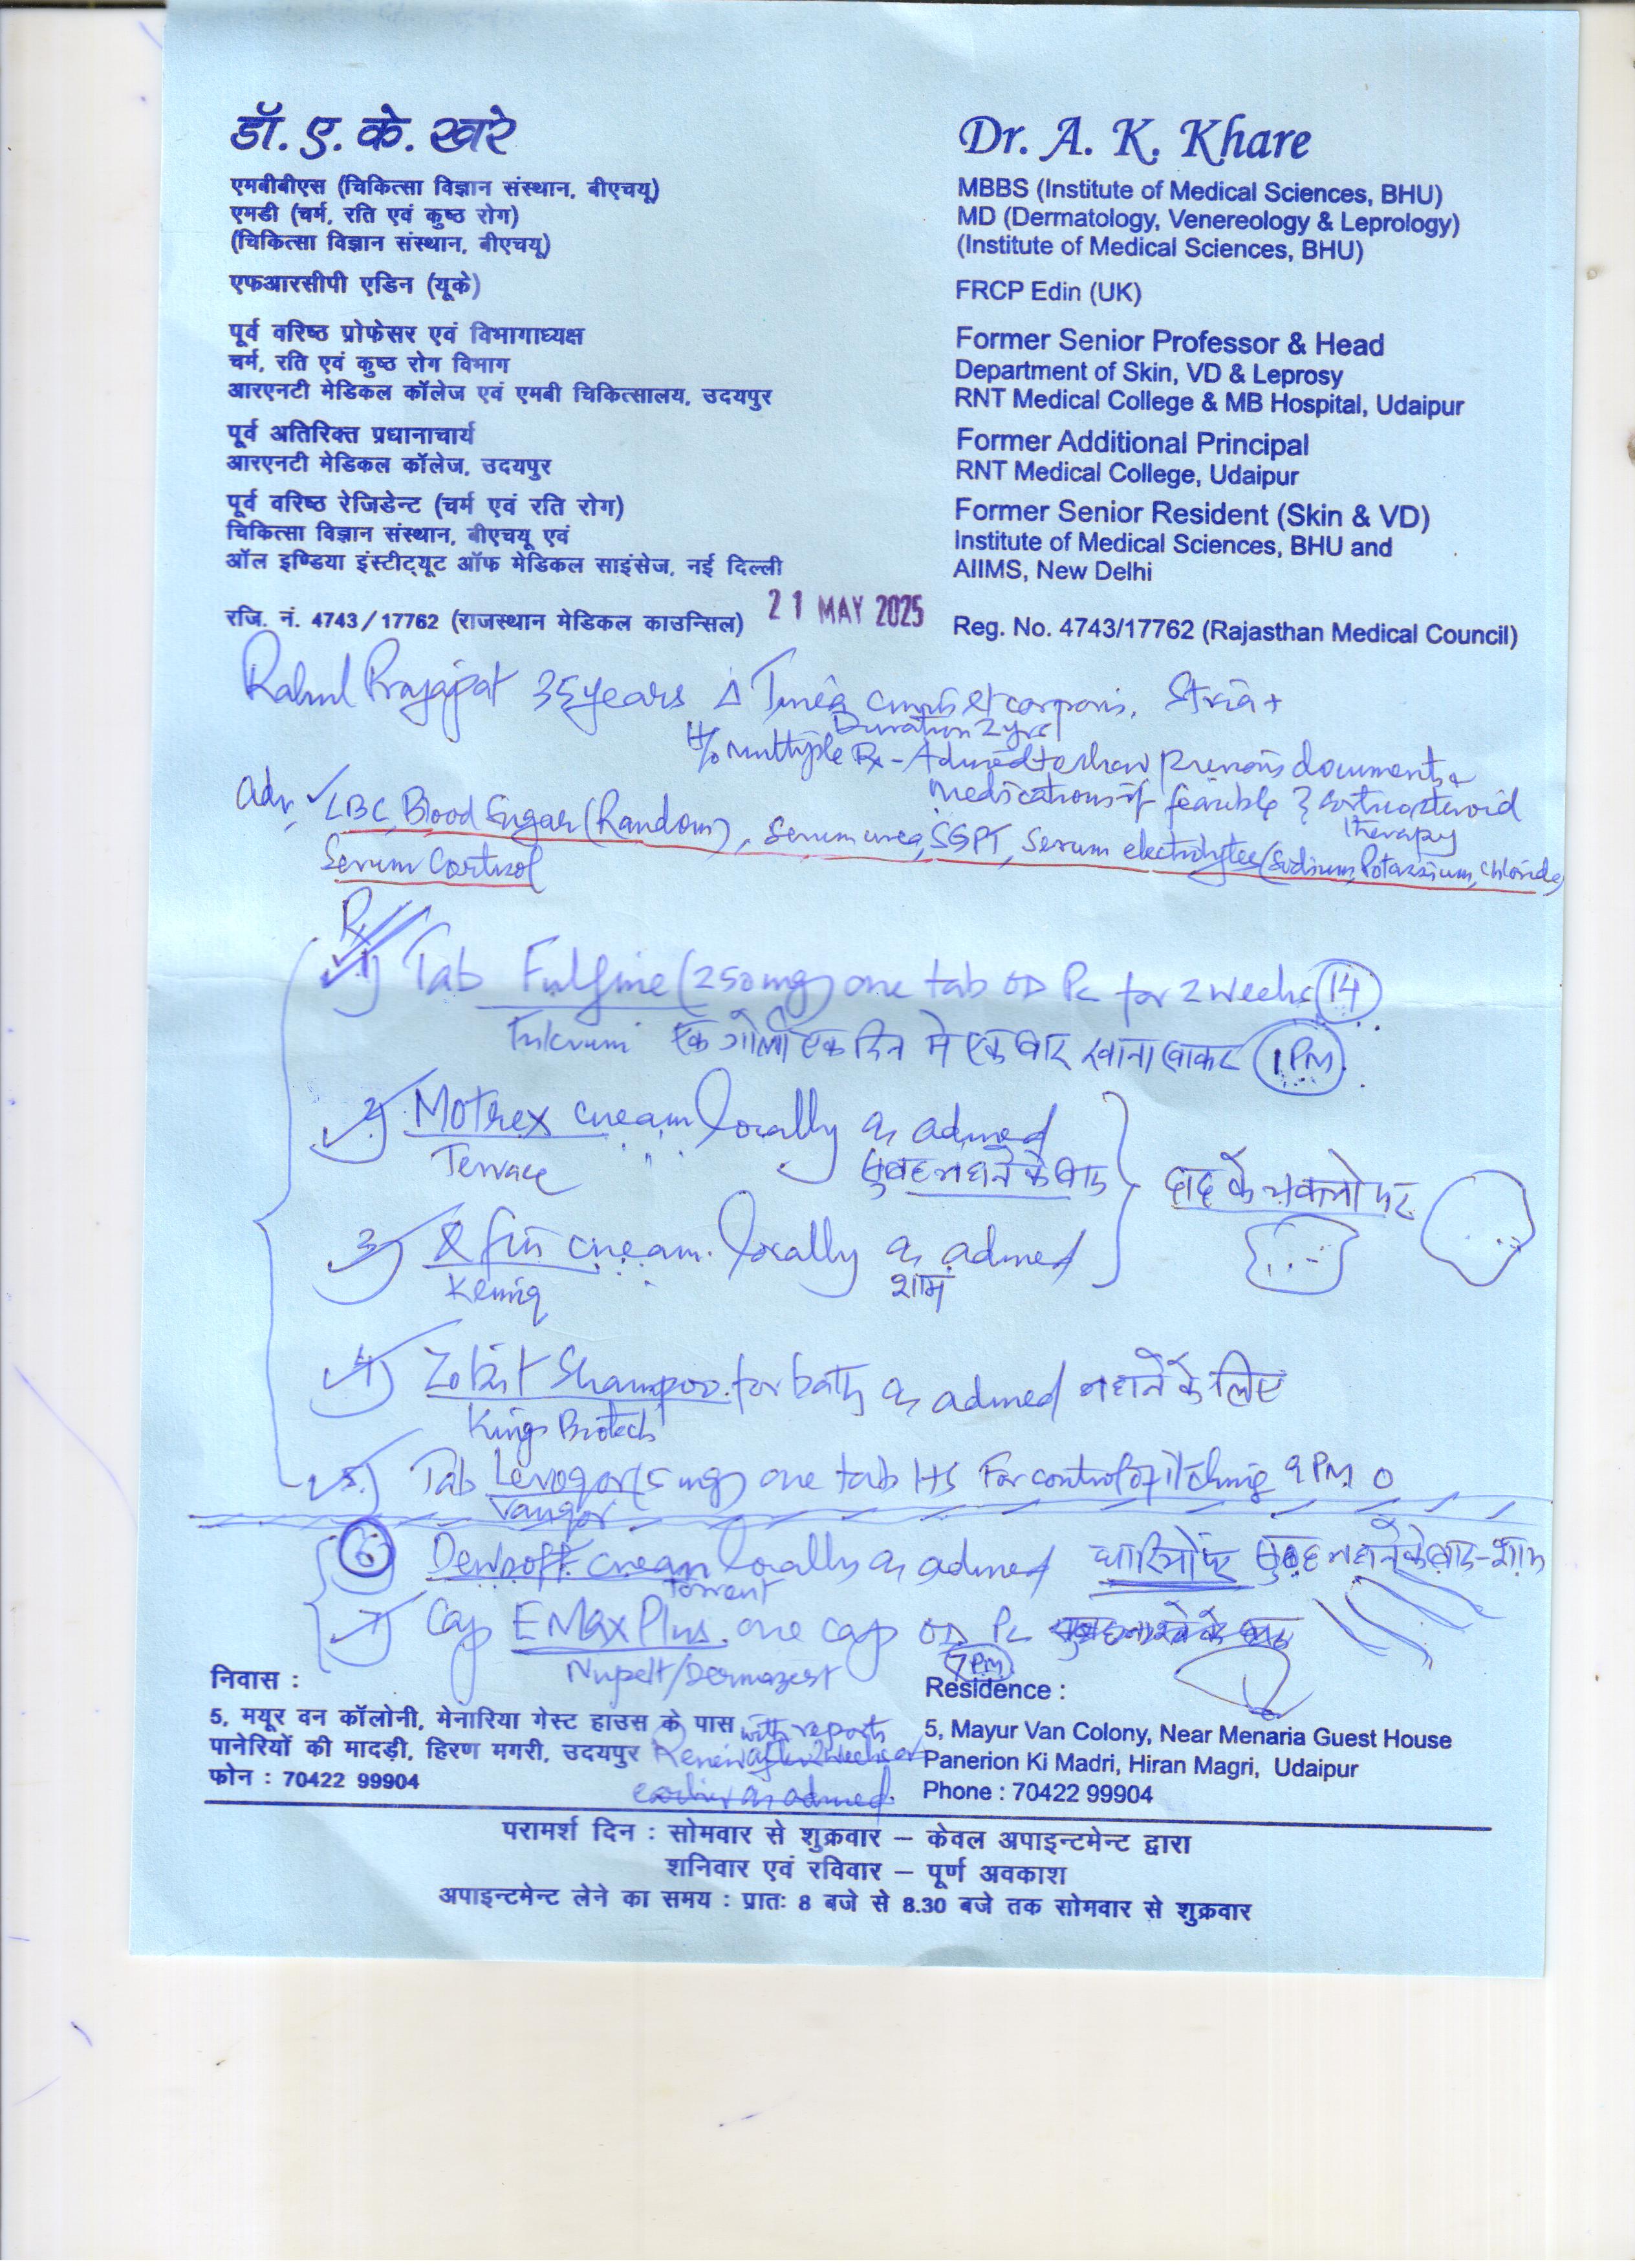 डॉ. ए. के. खरे
एमबीबीएस (चिकित्सा विज्ञान संस्थान, बीएचयू)
एमडी (चर्म, रति एवं कुष्ठ रोग)
(चिकित्सा विज्ञान संस्थान, बीएचयू)
एफआरसीपी एडिन (यूके)
पूर्व वरिष्ठ प्रोफेसर एवं विभागाध्यक्ष
चर्म, रति एवं कुष्ठ रोग विभाग
आरएनटी मेडिकल कॉलेज एवं एमबी चिकित्सालय, उदयपुर
पूर्व अतिरिक्त प्रधानाचार्य
आरएनटी मेडिकल कॉलेज, उदयपुर
पूर्व वरिष्ठ रेजिडेन्ट (चर्म एवं रति रोग)
चिकित्सा विज्ञान संस्थान, बीएचयू एवं
ऑल इण्डिया इंस्टीट्यूट ऑफ मेडिकल साइंसेज, नई दिल्ली
रजि. नं. 4743/17762 (राजस्थान मेडिकल काउन्सिल)
Dr. A. K. Khare
MBBS (Institute of Medical Sciences, BHU)
MD (Dermatology, Venereology & Leprology)
(Institute of Medical Sciences, BHU)
FRCP Edin (UK)
Former Senior Professor & Head
Department of Skin, VD & Leprosy
RNT Medical College & MB Hospital, Udaipur
Former Additional Principal
RNT Medical College, Udaipur
Former Senior Resident (Skin & VD)
Institute of Medical Sciences, BHU and
AIIMS, New Delhi
Reg. No. 4743/17762 (Rajasthan Medical Council)
21 MAY 2025
Rahul Prajapat 35 years Δ Tinea cruris et corporis, Stria+
Duration 2 yrs
H/o multiple Rx - Advised to show previous documents &
medications if feasible ? corticosteroid
therapy
Adv. CBC, Blood Sugar (Random), Serum urea, SGPT, Serum electrolytes (Sodium, Potassium, Chloride)
Serum Cortisol
Rx
1) Tab Fulfine (250mg) one tab OD PC for 2 weeks 14
Fulcrum एक गोली एक दिन मे एक बार खाना खाकर 1 PM
2) Motrex cream locally as advised
Terrace सुबह नहाने के बाद
दाद के चकत्तो पर
3) fin cream locally as advised
शाम
4) Shampoo for bath as advised नहाने के लिए
Kings Biotech
5) Tab (5mg) one tab HS For control of itching 9 PM
6) Dewsoft cream locally as advised धारियों पर सुबह नहाने के बाद - शाम
Torrent
7) Cap E Max Plus one cap OD PC
7 PM
with reports
Review after 2 weeks or
earlier as advised.
निवास :
5, मयूर वन कॉलोनी, मेनारिया गेस्ट हाउस के पास
पानेरियों की मादड़ी, हिरण मगरी, उदयपुर
फोन : 70422 99904
Residence :
5, Mayur Van Colony, Near Menaria Guest House
Panerion Ki Madri, Hiran Magri, Udaipur
Phone : 70422 99904
परामर्श दिन : सोमवार से शुक्रवार – केवल अपाइन्टमेन्ट द्वारा
शनिवार एवं रविवार – पूर्ण अवकाश
अपाइन्टमेन्ट लेने का समय : प्रातः 8 बजे से 8.30 बजे तक सोमवार से शुक्रवार